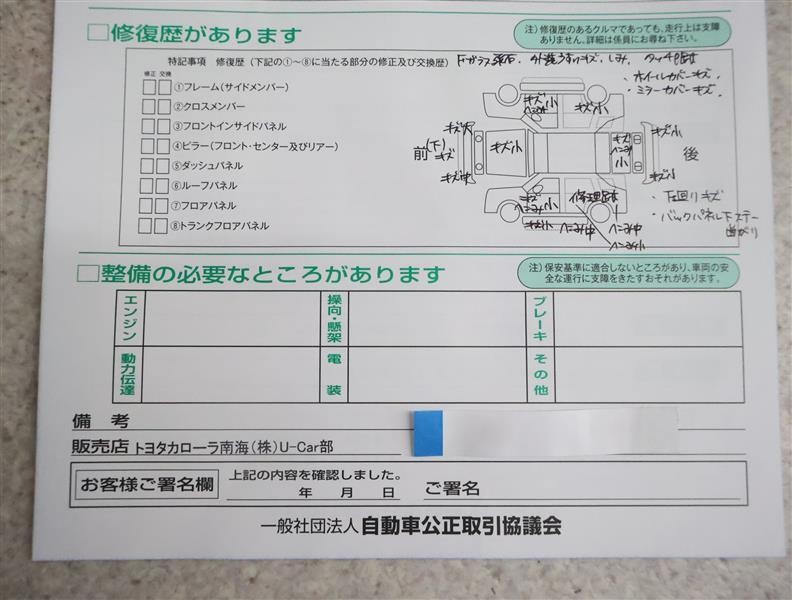 □修復歴があります
注）修復歴のあるクルマであっても、走行上は支障
ありません、詳細は係員にお尋ね下さい。
特記事項　修復歴（下記の①～⑧に当たる部分の修正及び交換歴）
外装うすいキズ、しみ、タッチ跡有
・ホイールカバーキズ
・ミラーカバーキズ
修正　交換
①フレーム（サイドメンバー）
②クロスメンバー
③フロントインサイドパネル
④ピラー（フロント・センター及びリアー）
⑤ダッシュパネル
⑥ルーフパネル
⑦フロアパネル
⑧トランクフロアパネル
キズ小
キズ小
前
（下）
キズ
キズ中
キズ小
キズ
ヘコミ
小
キズ小
キズ小
後
キズ
ヘコミ小
キズ小
修理跡有
ヘコミ中
ヘコミ中
ヘコミ小
・下回りキズ
・バックパネル下ステー
曲がり
□整備の必要なところがあります
注）保安基準に適合しないところがあり、車両の安
全な運行に支障をきたすおそれがあります。
エンジン
操向・懸架
ブレーキ
動力伝達
電装
その他
備考
販売店 トヨタカローラ南海（株）U-Car部
お客様ご署名欄
上記の内容を確認しました。
年　月　日　ご署名
一般社団法人 自動車公正取引協議会